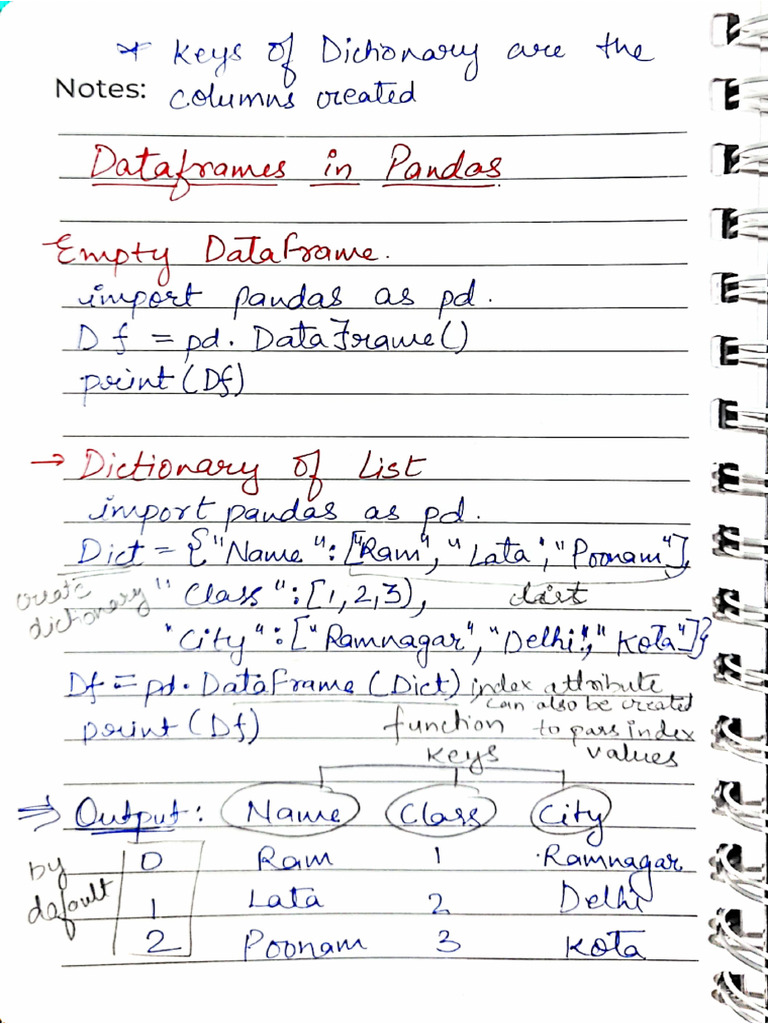 * Keys of Dictionary are the
Notes: columns created
Dataframes in Pandas
Empty DataFrame.
import pandas as pd.
Df = pd. DataFrame()
print(Df)
→ Dictionary of List
import pandas as pd.
Dict = {"Name": ["Ram", "Lata", "Poonam"],
create dictionary
"Class": [1, 2, 3),
list
"City": ["Ramnagar", "Delhi", "Kota"]}
Df = pd. DataFrame (Dict) index attribute
can also be created
print (Df) function to pass index
keys values
⇒ Output: Name Class City
by default
0 Ram 1 Ramnagar
1 Lata 2 Delhi
2 Poonam 3 Kota